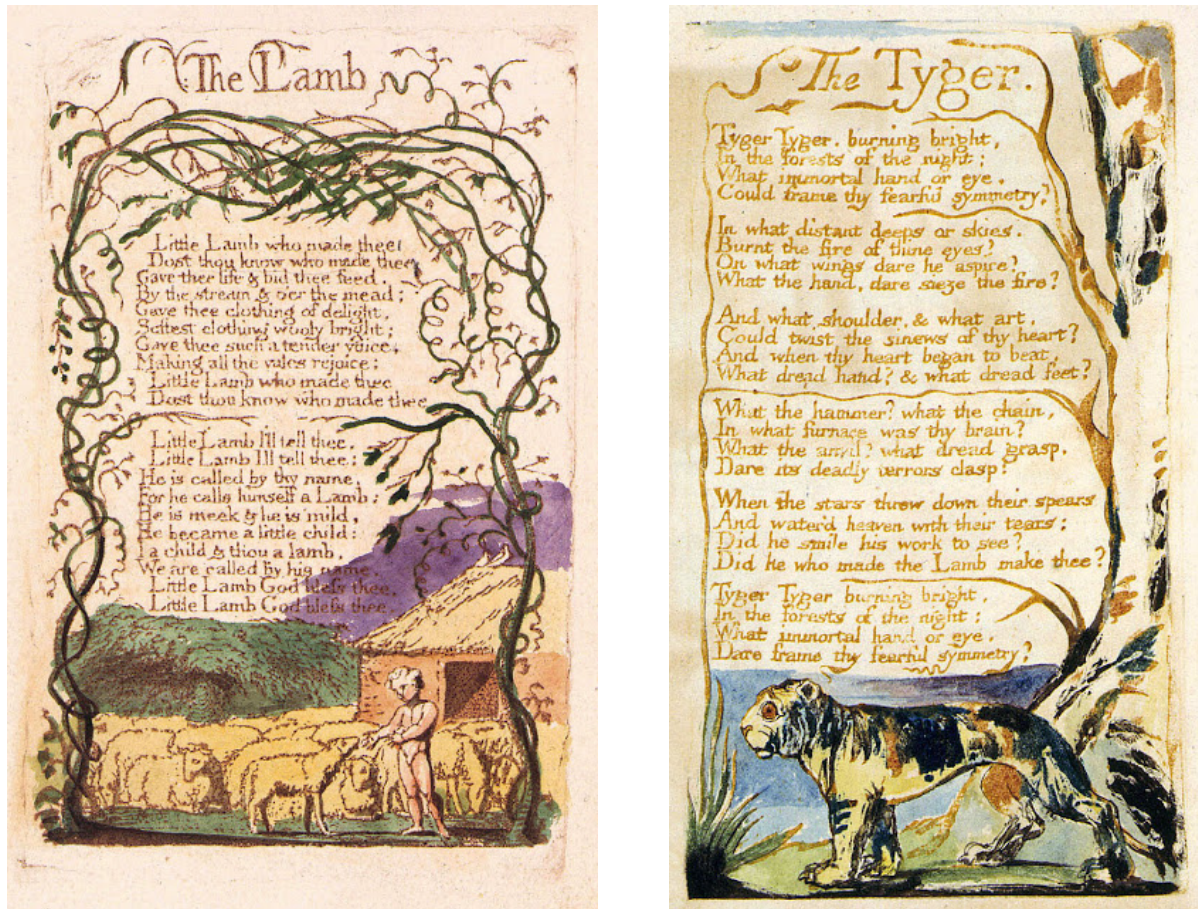 The Lamb
Little Lamb who made thee
Dost thou know who made thee
Gave thee life & bid thee feed.
By the stream & o'er the mead;
Gave thee clothing of delight,
Softest clothing wooly bright;
Gave thee such a tender voice,
Making all the vales rejoice:
Little Lamb who made thee
Dost thou know who made thee
Little Lamb I'll tell thee,
Little Lamb I'll tell thee;
He is called by thy name,
For he calls himself a Lamb:
He is meek & he is mild,
He became a little child:
I a child & thou a lamb,
We are called by his name.
Little Lamb God bless thee,
Little Lamb God bless thee.
The Tyger.
Tyger Tyger, burning bright,
In the forests of the night;
What immortal hand or eye,
Could frame thy fearful symmetry?
In what distant deeps or skies.
Burnt the fire of thine eyes?
On what wings dare he aspire?
What the hand, dare sieze the fire?
And what shoulder, & what art,
Could twist the sinews of thy heart?
And when thy heart began to beat,
What dread hand? & what dread feet?
What the hammer? what the chain,
In what furnace was thy brain?
What the anvil? what dread grasp,
Dare its deadly terrors clasp?
When the stars threw down their spears
And water'd heaven with their tears:
Did he smile his work to see?
Did he who made the Lamb make thee?
Tyger Tyger burning bright,
In the forests of the night:
What immortal hand or eye,
Dare frame thy fearful symmetry?